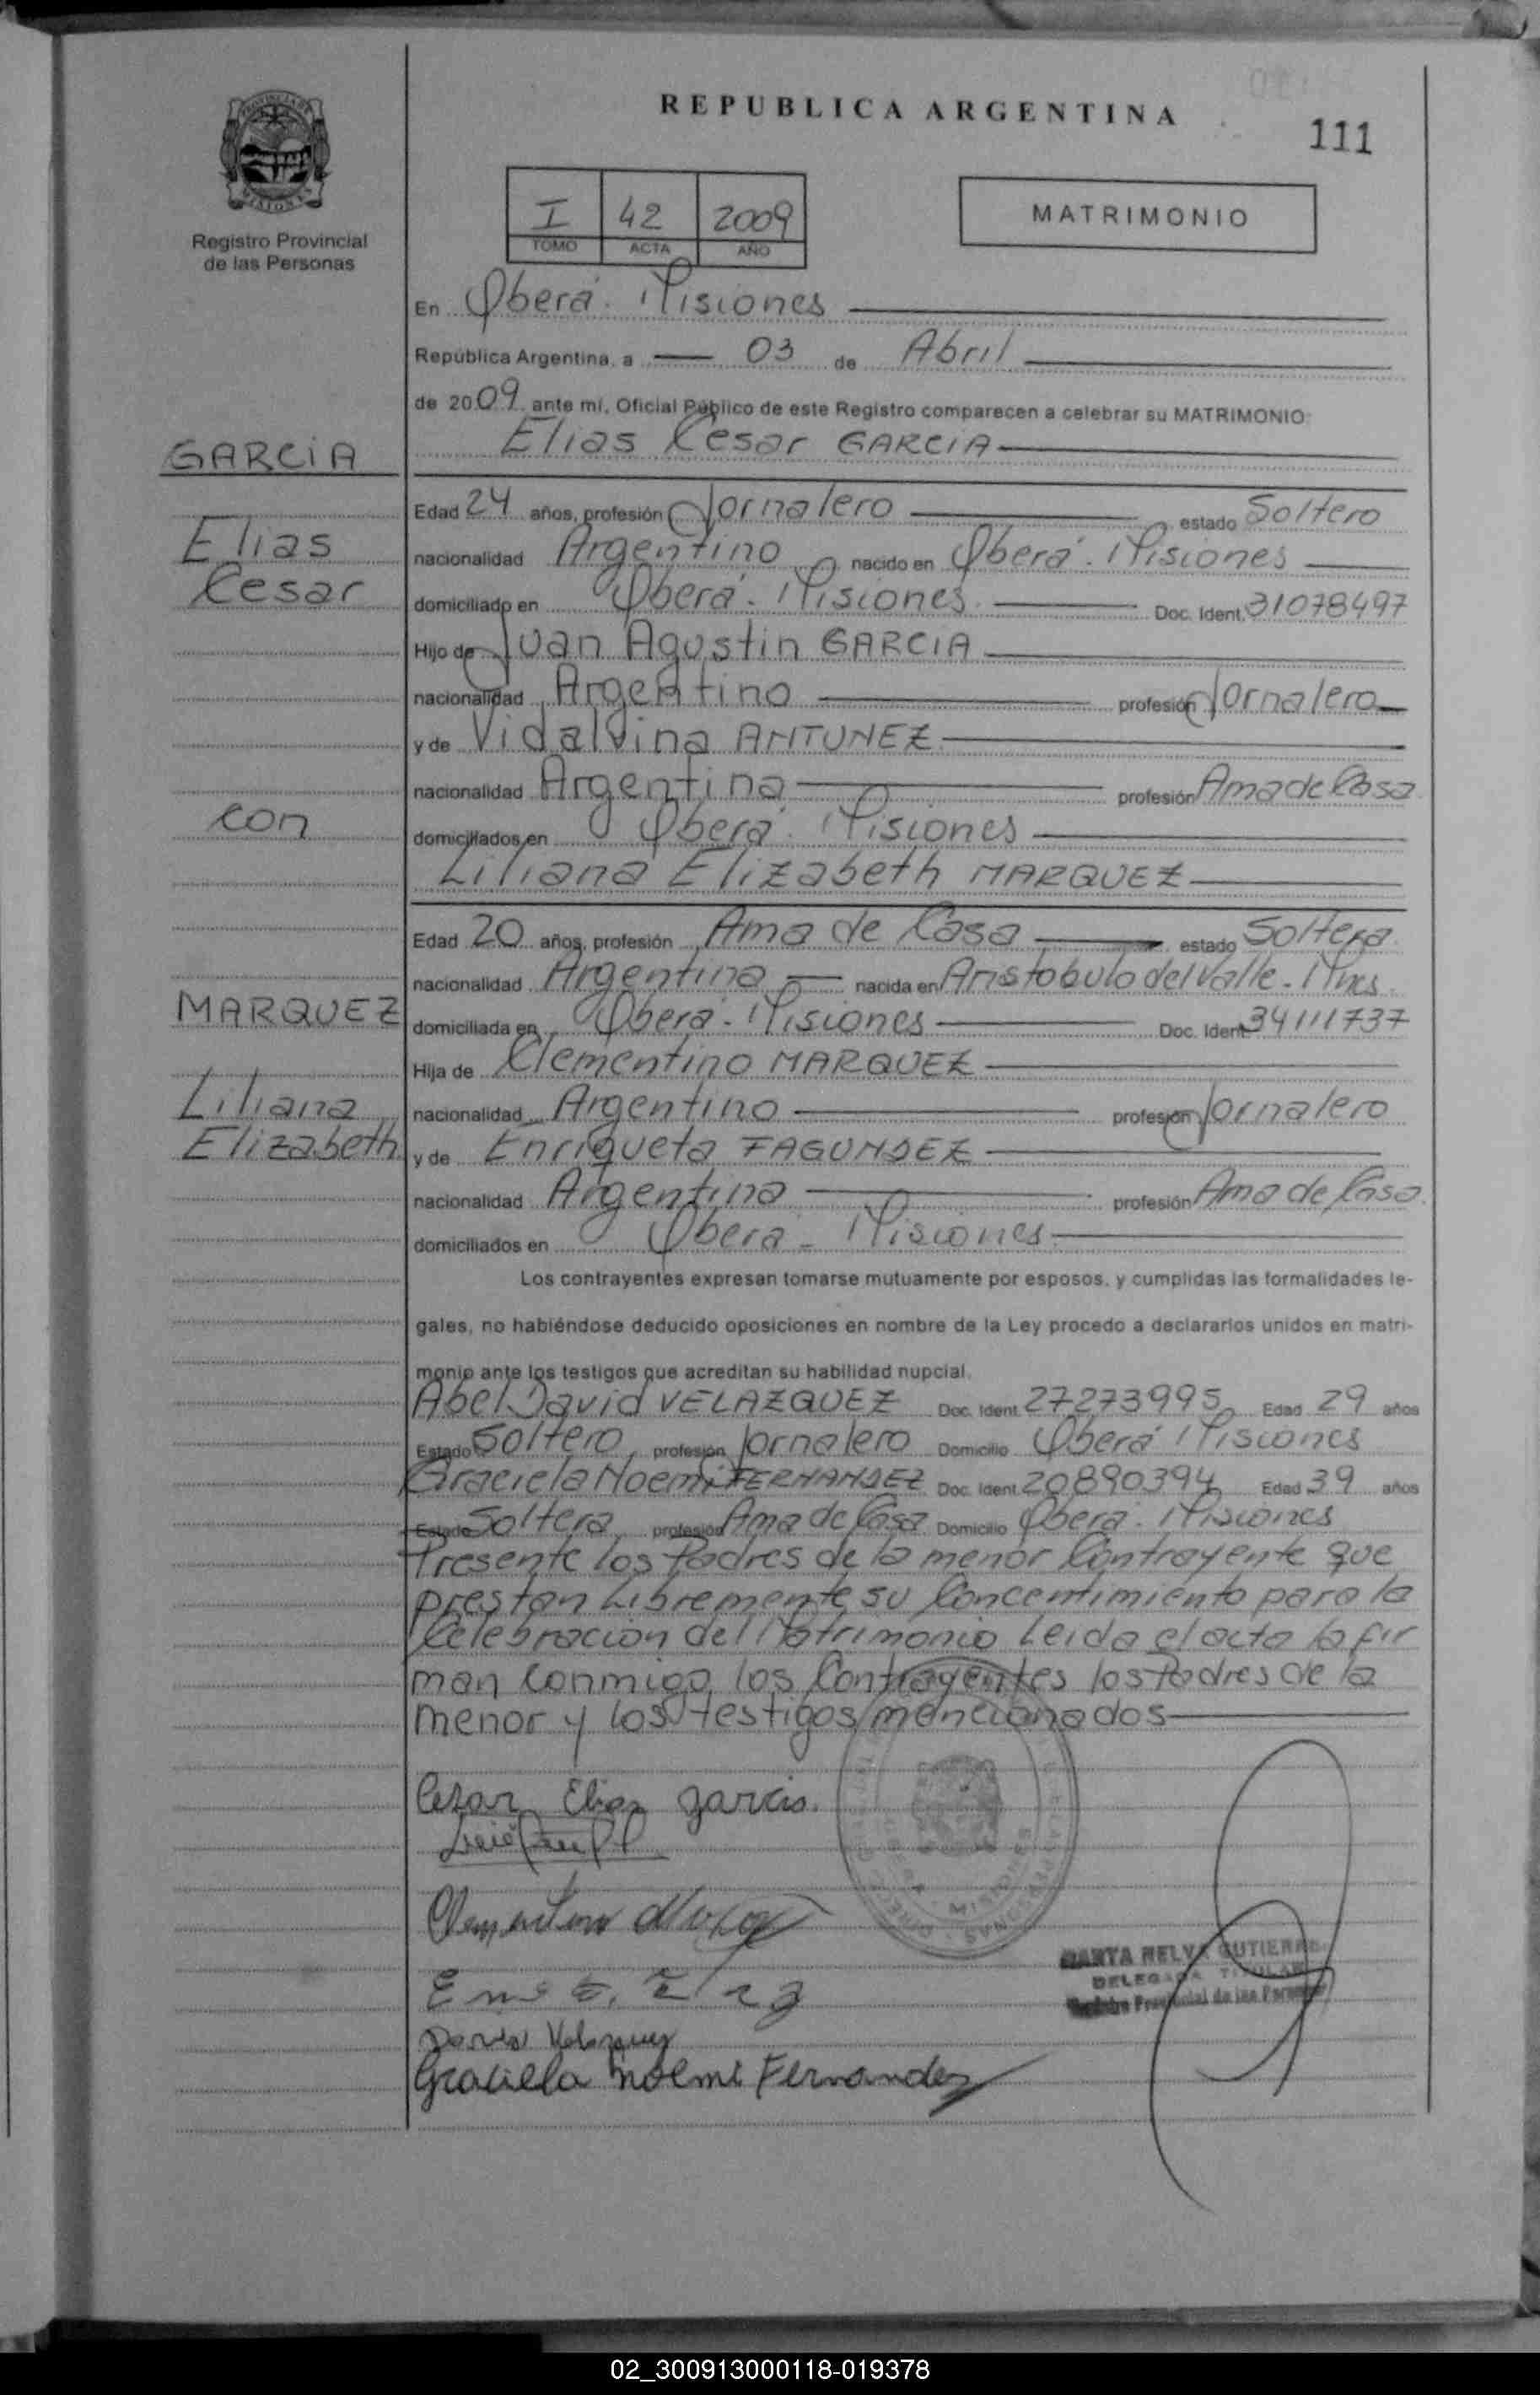 REPUBLICA ARGENTINA
111
Registro Provincial
de las Personas
I 42 2009
TOMO ACTA AÑO
MATRIMONIO
En Oberá. Misiones
República Argentina, a 03 de Abril
de 2009 ante mí, Oficial Público de este Registro comparecen a celebrar su MATRIMONIO:
Elias Cesar GARCIA
GARCIA
Elias
Cesar
con
MARQUEZ
Liliana
Elizabeth
Edad 24 años, profesión Jornalero estado Soltero
nacionalidad Argentino nacido en Oberá. Misiones
domiciliado en Oberá. Misiones Doc. Ident. 31078497
Hijo de Juan Agustin GARCIA
nacionalidad Argentino profesión Jornalero
y de Vidalvina ANTUNEZ
nacionalidad Argentina profesión Ama de Casa
domiciliados en Oberá. Misiones
Liliana Elizabeth MARQUEZ
Edad 20 años, profesión Ama de Casa estado Soltera
nacionalidad Argentina nacida en Aristobulo del Valle. Mnes.
domiciliada en Oberá. Misiones Doc. Ident. 34111737
Hija de Clementino MARQUEZ
nacionalidad Argentino profesión Jornalero
y de Enriqueta FAGUNDEZ
nacionalidad Argentina profesión Ama de Casa.
domiciliados en Oberá - Misiones
Los contrayentes expresan tomarse mutuamente por esposos, y cumplidas las formalidades le-
gales, no habiéndose deducido oposiciones en nombre de la Ley procedo a declararlos unidos en matri-
monio ante los testigos que acreditan su habilidad nupcial.
Abel David VELAZQUEZ Doc. Ident. 27273995 Edad 29 años
Estado Soltero profesión Jornalero Domicilio Oberá Misiones
Graciela Noemi FERNANDEZ Doc. Ident. 20890394 Edad 39 años
Estado Soltera profesión Ama de Casa Domicilio Oberá. Misiones
Presente los Padres de la menor Contrayente que
prestan Libremente su Concentimiento para la
Celebracion del Matrimonio Leida el acta la fir
man conmigo los Contrayentes los Padres de la
menor y los testigos mencionados
Cesar Elias garcia.
MARTA NELVA GUTIERREZ
DELEGADA TITULAR
Registro Provincial de las Personas
David Velazquez
Graciela Noemi Fernandez
02_300913000118-019378